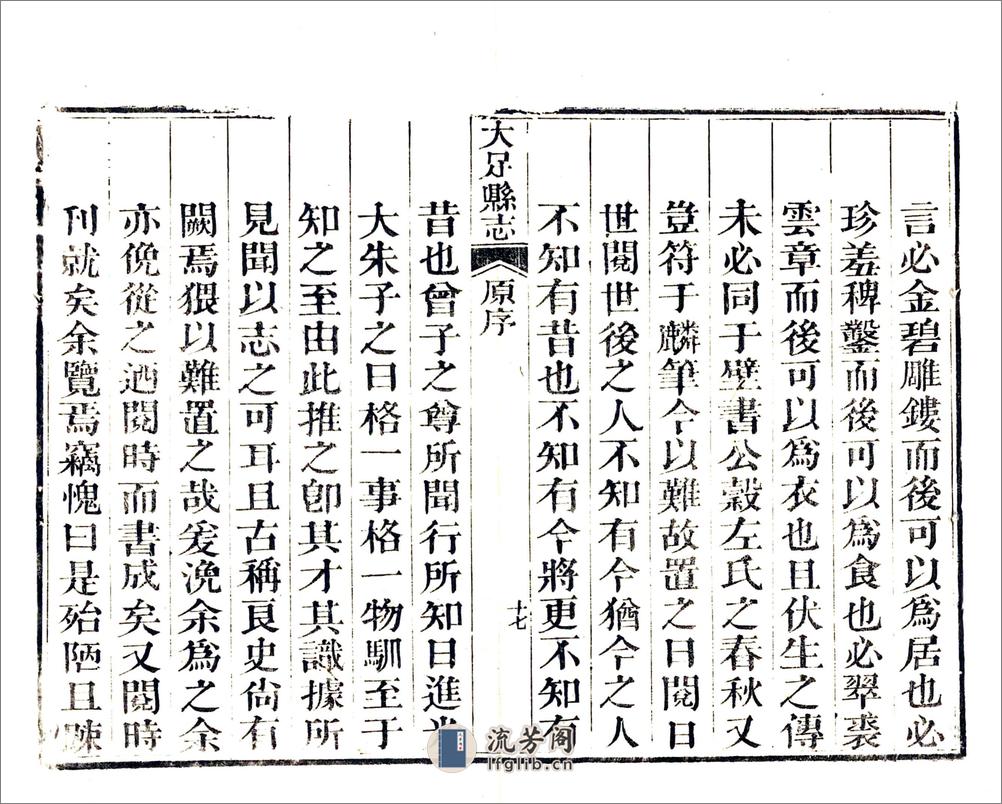 言必金碧雕鏤而後可以爲居也必
珍羞稗鑿而後可以爲食也必翠裘
雲章而後可以爲衣也且伏生之傳
未必同于壁書公穀左氏之春秋又
豈符于麟筆今以難故置之日閱日
世閱世後之人不知有今猶今之人
不知有昔也不知有今將更不知有
大足縣志
原序
十七
昔也曾子之尊所聞行所知日進光
大朱子之曰格一事格一物馴至于
知之至由此推之卽其才其識據所
見聞以志之可耳且古稱良史尙有
闕焉猥以難置之哉爰浼余爲之余
亦俛從之迺閱時而書成矣又閱時
刊就矣余覽焉竊愧曰是殆陋且陳
流芳阁
lfglib.cn